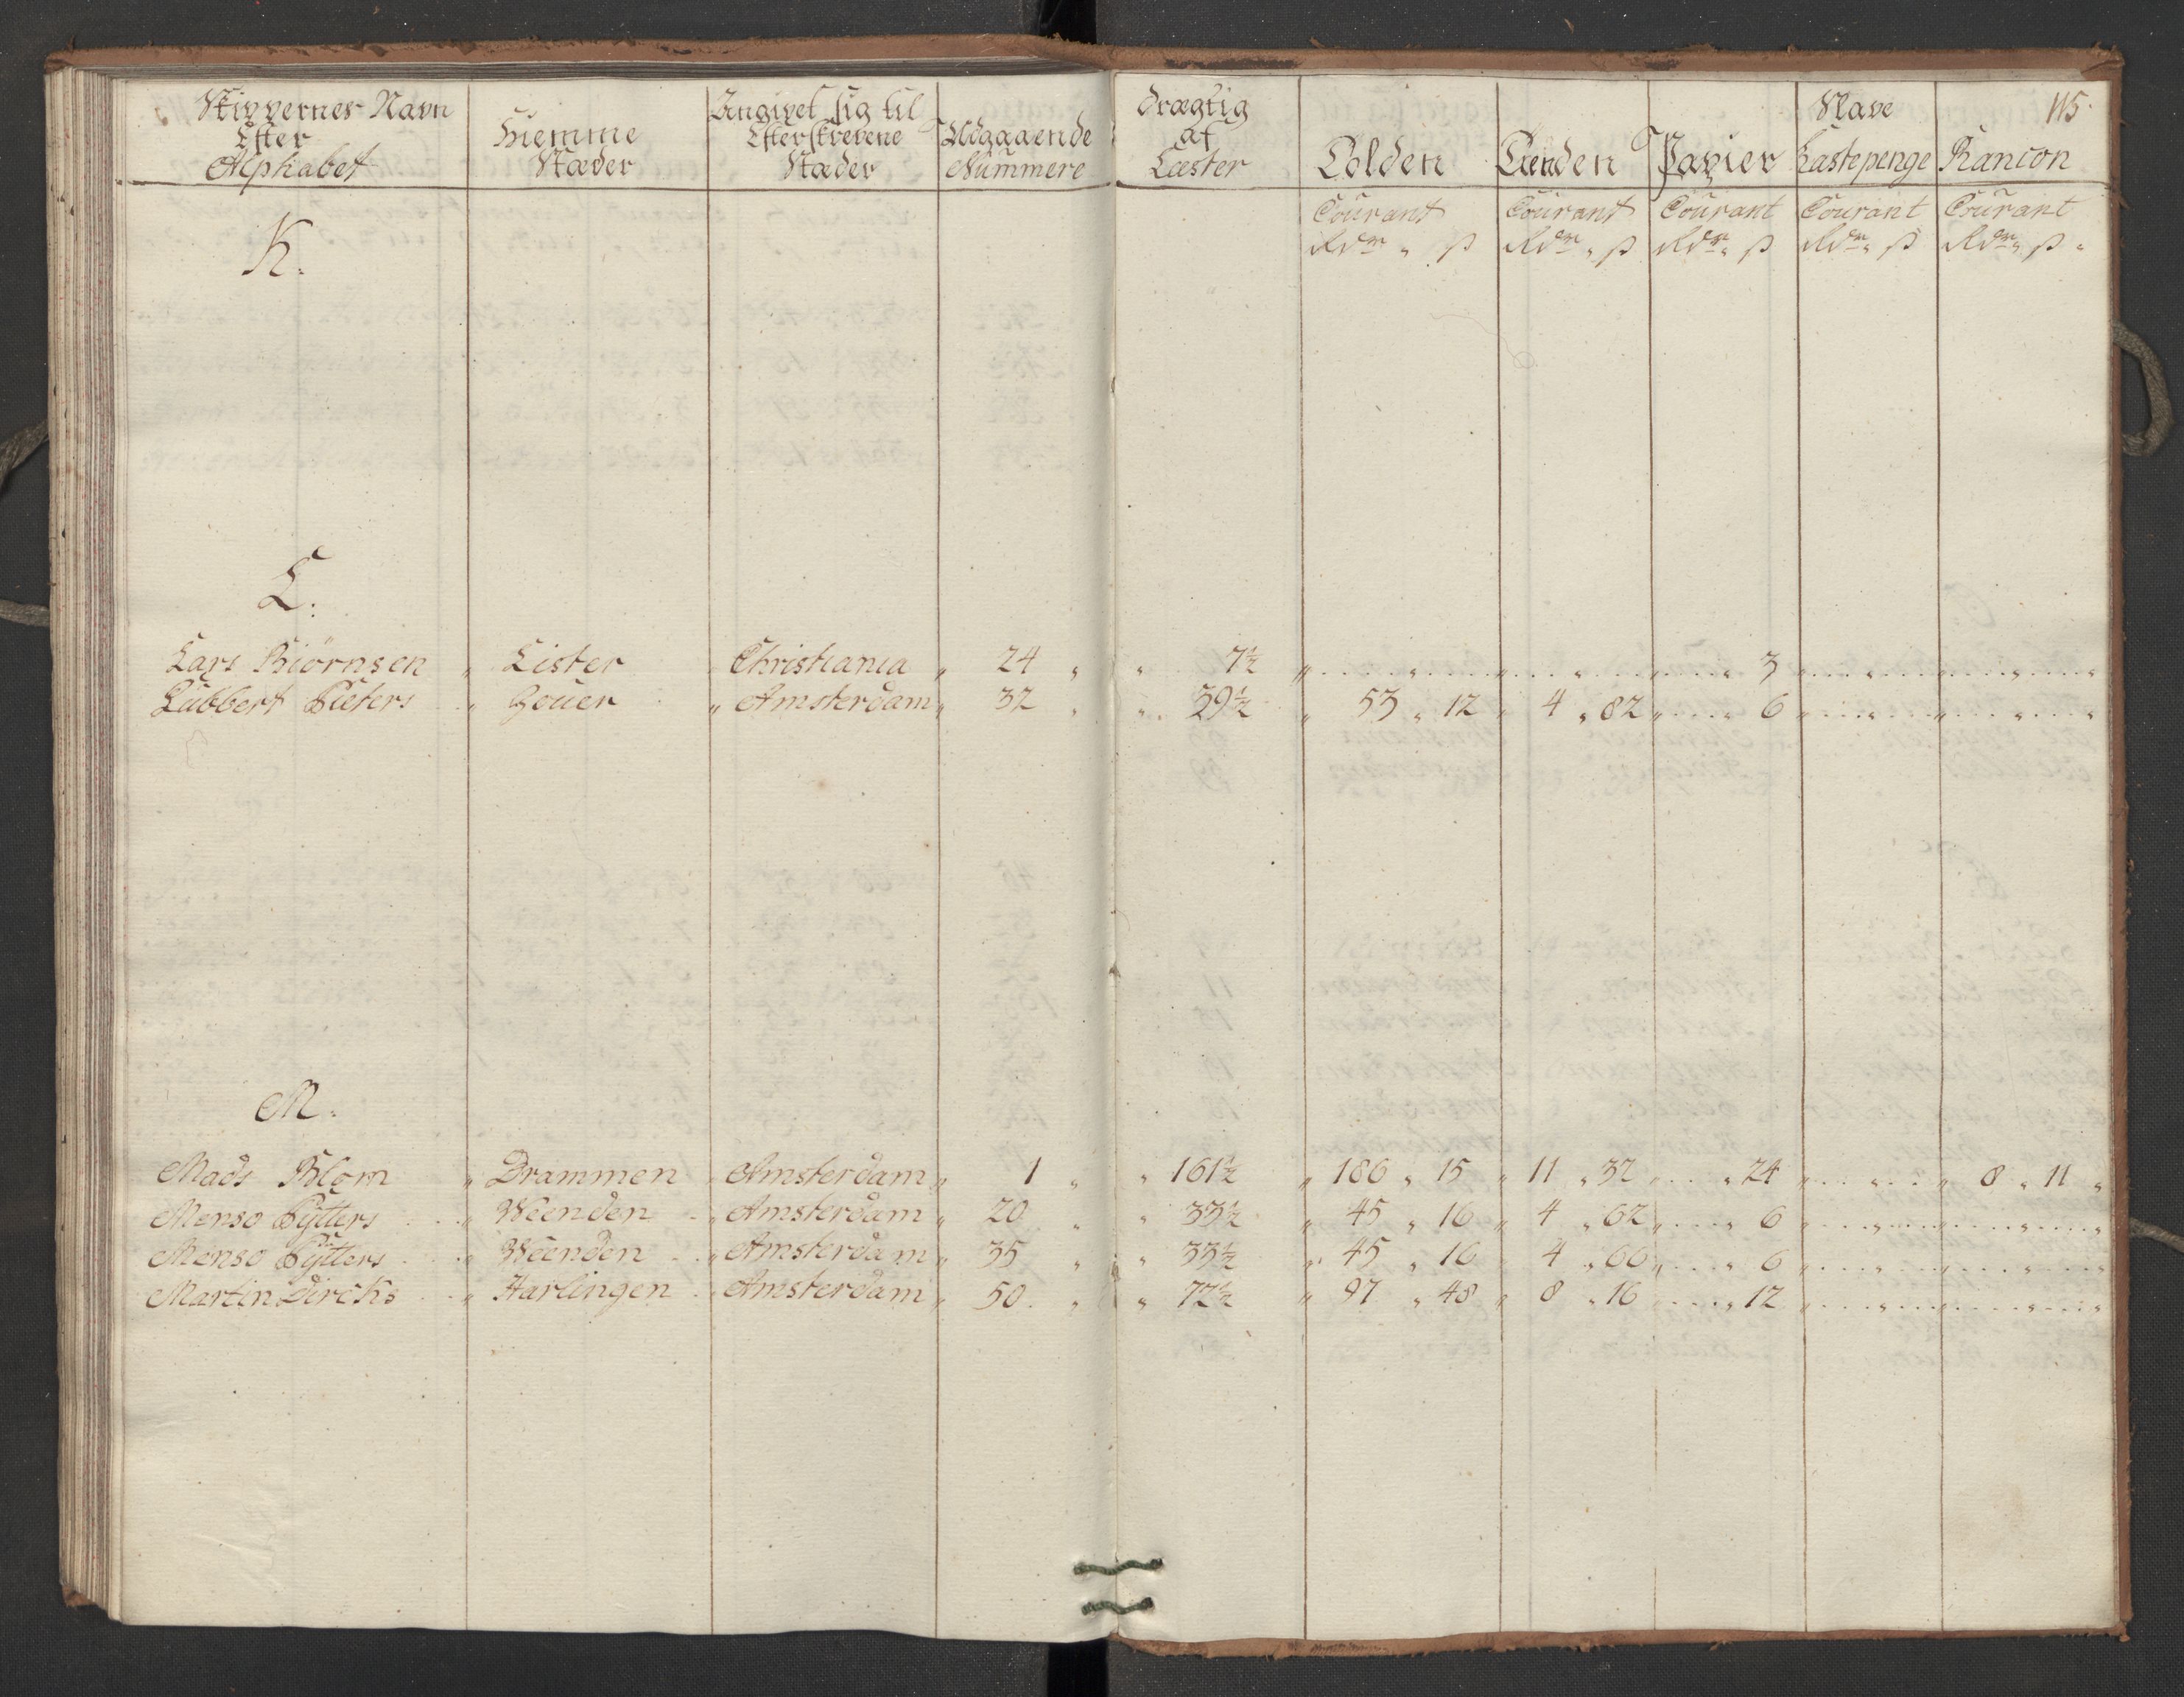 115.
Skippernes Navn Efter Alphabet | Hiemme Stæder | Angivet sig til Efterskrevene Stæder | Udgaaende Nummere | Drægtig af Læster | Tolden | Tienden | Papier | Slave Kastepenge | Rancon
Courant | Courant | Courant | Courant | Courant
Rdr „ ß | Rdr „ ß | Rdr „ ß | Rdr „ ß | Rdr „ ß
K.
L.
Lars Biörnsen „ Lister „ Christiania „ 24 „ „ 7½ „ „ „ „ „ 3 „ „ „ „
Lübbert Pieters „ Goüer „ Amsterdam „ 32 „ „ 39½ „ 53 „ 12 „ 4 „ 82 „ „ 6 „ „ „ „
M.
Mads Blom „ Drammen „ Amsterdam „ 1 „ „ 161½ „ 186 „ 15 „ 11 „ 32 „ „ 24 „ „ „ 8 „ 11 „
Menso Pÿtters „ Weenden „ Amsterdam „ 20 „ „ 33½ „ 45 „ 16 „ 4 „ 62 „ „ 6 „ „ „ „
Menso Pÿtters „ Weenden „ Amsterdam „ 35 „ „ 33½ „ 45 „ 16 „ 4 „ 60 „ „ 6 „ „ „ „
Martin Dircks „ Harlingen „ Amsterdam „ 50 „ „ 72½ „ 97 „ 48 „ 8 „ 16 „ „ 12 „ „ „ „